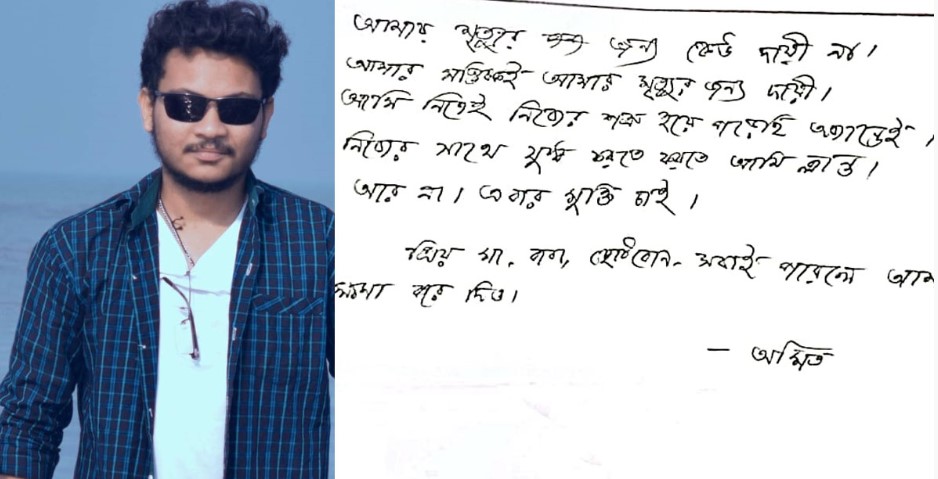 আমার মৃত্যুর জন্য কেউ দায়ী নয়।
আমার মস্তিষ্কই আমার মৃত্যুর জন্য দায়ী।
আমি নিজেই নিজের শত্রু হয়ে পড়েছি অজান্তেই।
নিজের সাথে যুদ্ধ করতে করতে আমি ক্লান্ত।
আর না। এবার মুক্তি চাই।
প্রিয় মা, বাবা, ছোটবোন, সবাই পারলে
ক্ষমা করে দিও।